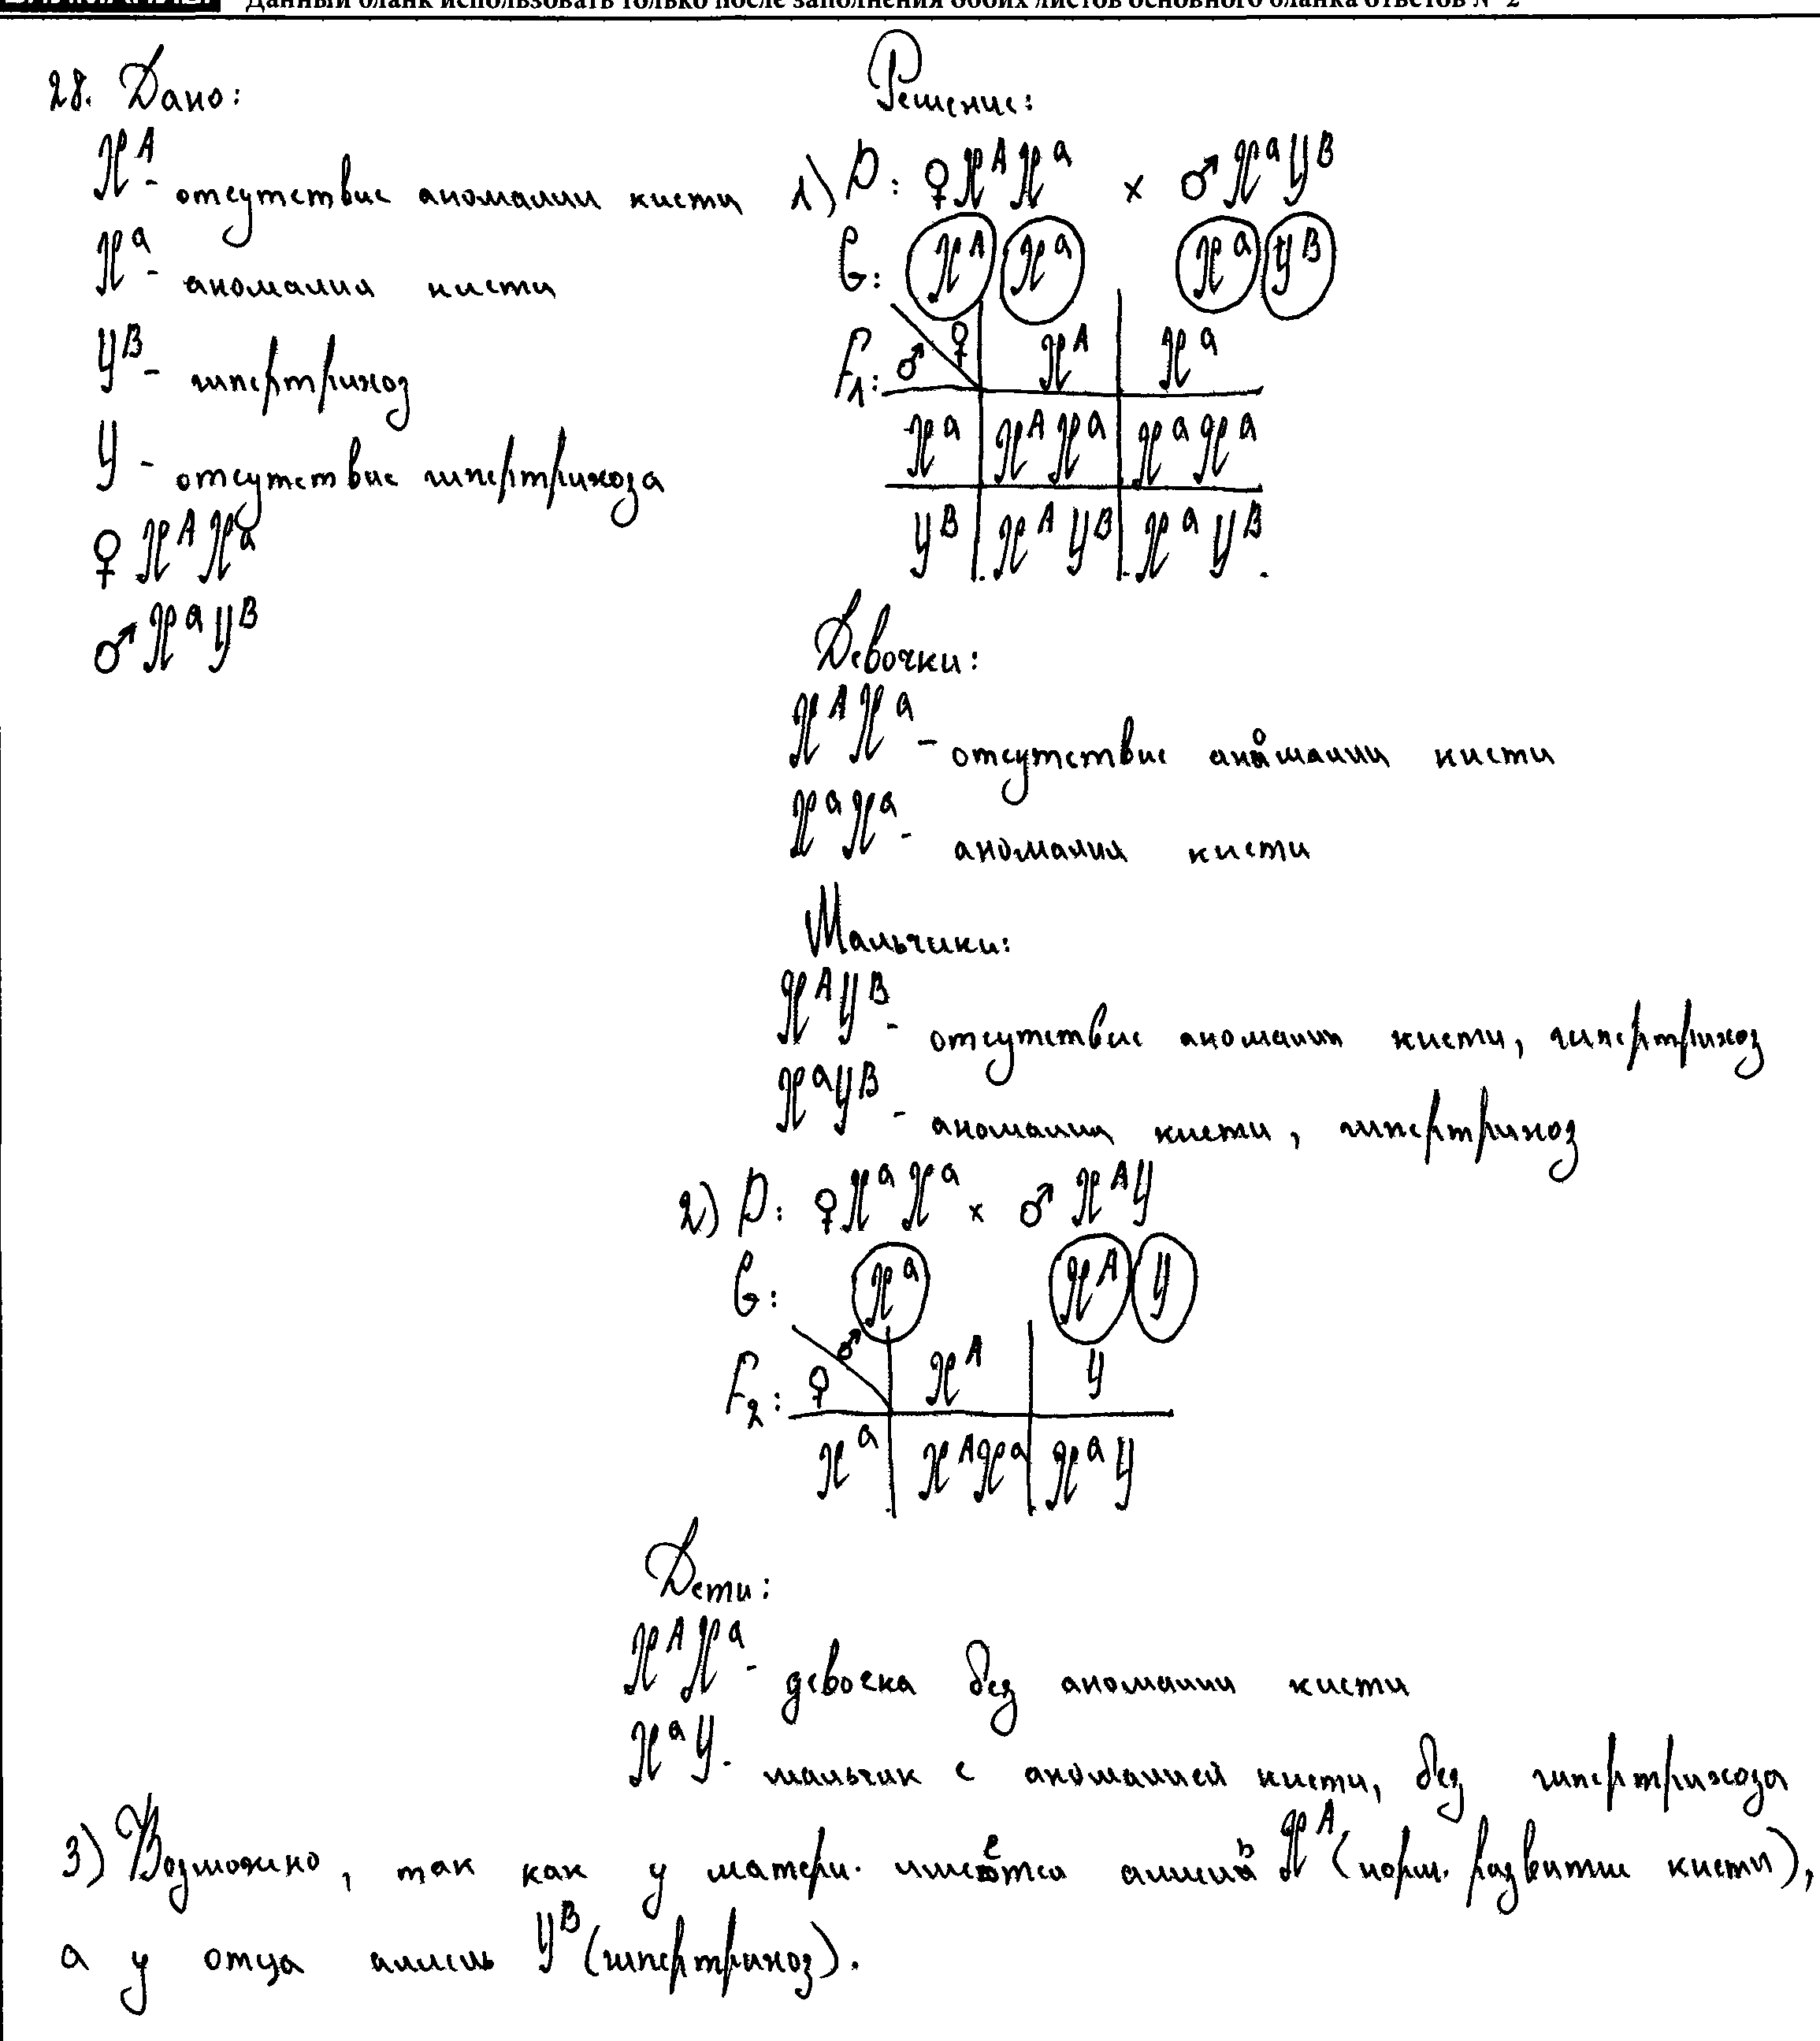 Данный бланк использовать только после заполнения обоих листов основного бланка ответов № 2
28. Дано:
X^A - отсутствие аномалии кисти
X^a - аномалия кисти
Y^B - гипертрихоз
Y - отсутствие гипертрихоза
♀ X^A X^a
♂ X^a Y^B
Решение:
1) P: ♀ X^A X^a × ♂ X^a Y^B
G: X^A X^a X^a Y^B
F1: ♂ ♀ X^A X^a
X^a X^A X^a X^a X^a
Y^B X^A Y^B X^a Y^B
Девочки:
X^A X^a - отсутствие аномалии кисти
X^a X^a - аномалия кисти
Мальчики:
X^A Y^B - отсутствие аномалии кисти, гипертрихоз
X^a Y^B - аномалия кисти, гипертрихоз
2) P: ♀ X^a X^a × ♂ X^A Y
G: X^a X^A Y
F2: ♀ ♂ X^A Y
X^a X^A X^a X^a Y
Дети:
X^A X^a - девочка без аномалии кисти
X^a Y - мальчик с аномалией кисти, без гипертрихоза
3) Возможно, так как у матери имеется аллель X^A (норм. развитие кисти),
а у отца аллель Y^B (гипертрихоз).